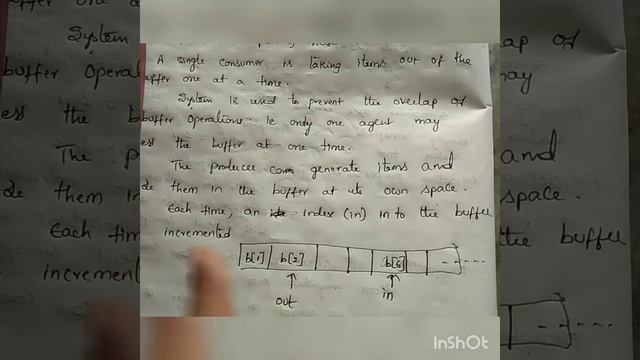 A single consumer is taking items out of the
buffer one at a time.
System is used to prevent the overlap of
buffer operations. ie only one agent may
ess the buffer at one time.
The producer can generate items and
de them in the buffer at its own space.
Each time, an index (in) in to the buffer
incremented
b[1] b[2] b[6] ------
out in
InShOt